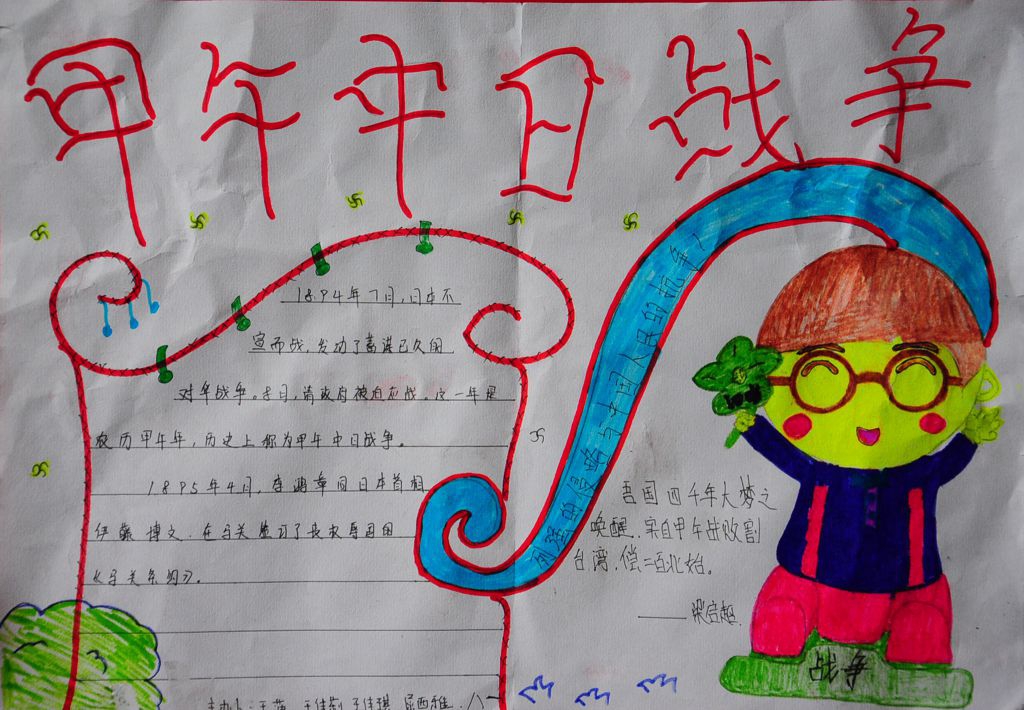 甲午中日战争
1894年7月,日本不
宣而战,发动了蓄谋已久的
对华战争。8月,清政府被迫应战。这一年是
农历甲午年,历史上称为甲午中日战争。
1895年4月,李鸿章同日本首相
伊藤博文,在马关签订了丧权辱国的
《马关条约》。
列强的侵略与中国人民的抗争
吾国四千年大梦之
唤醒,实自甲午战败割
台湾,偿二百兆始。
——梁启超
战争
主办人:王